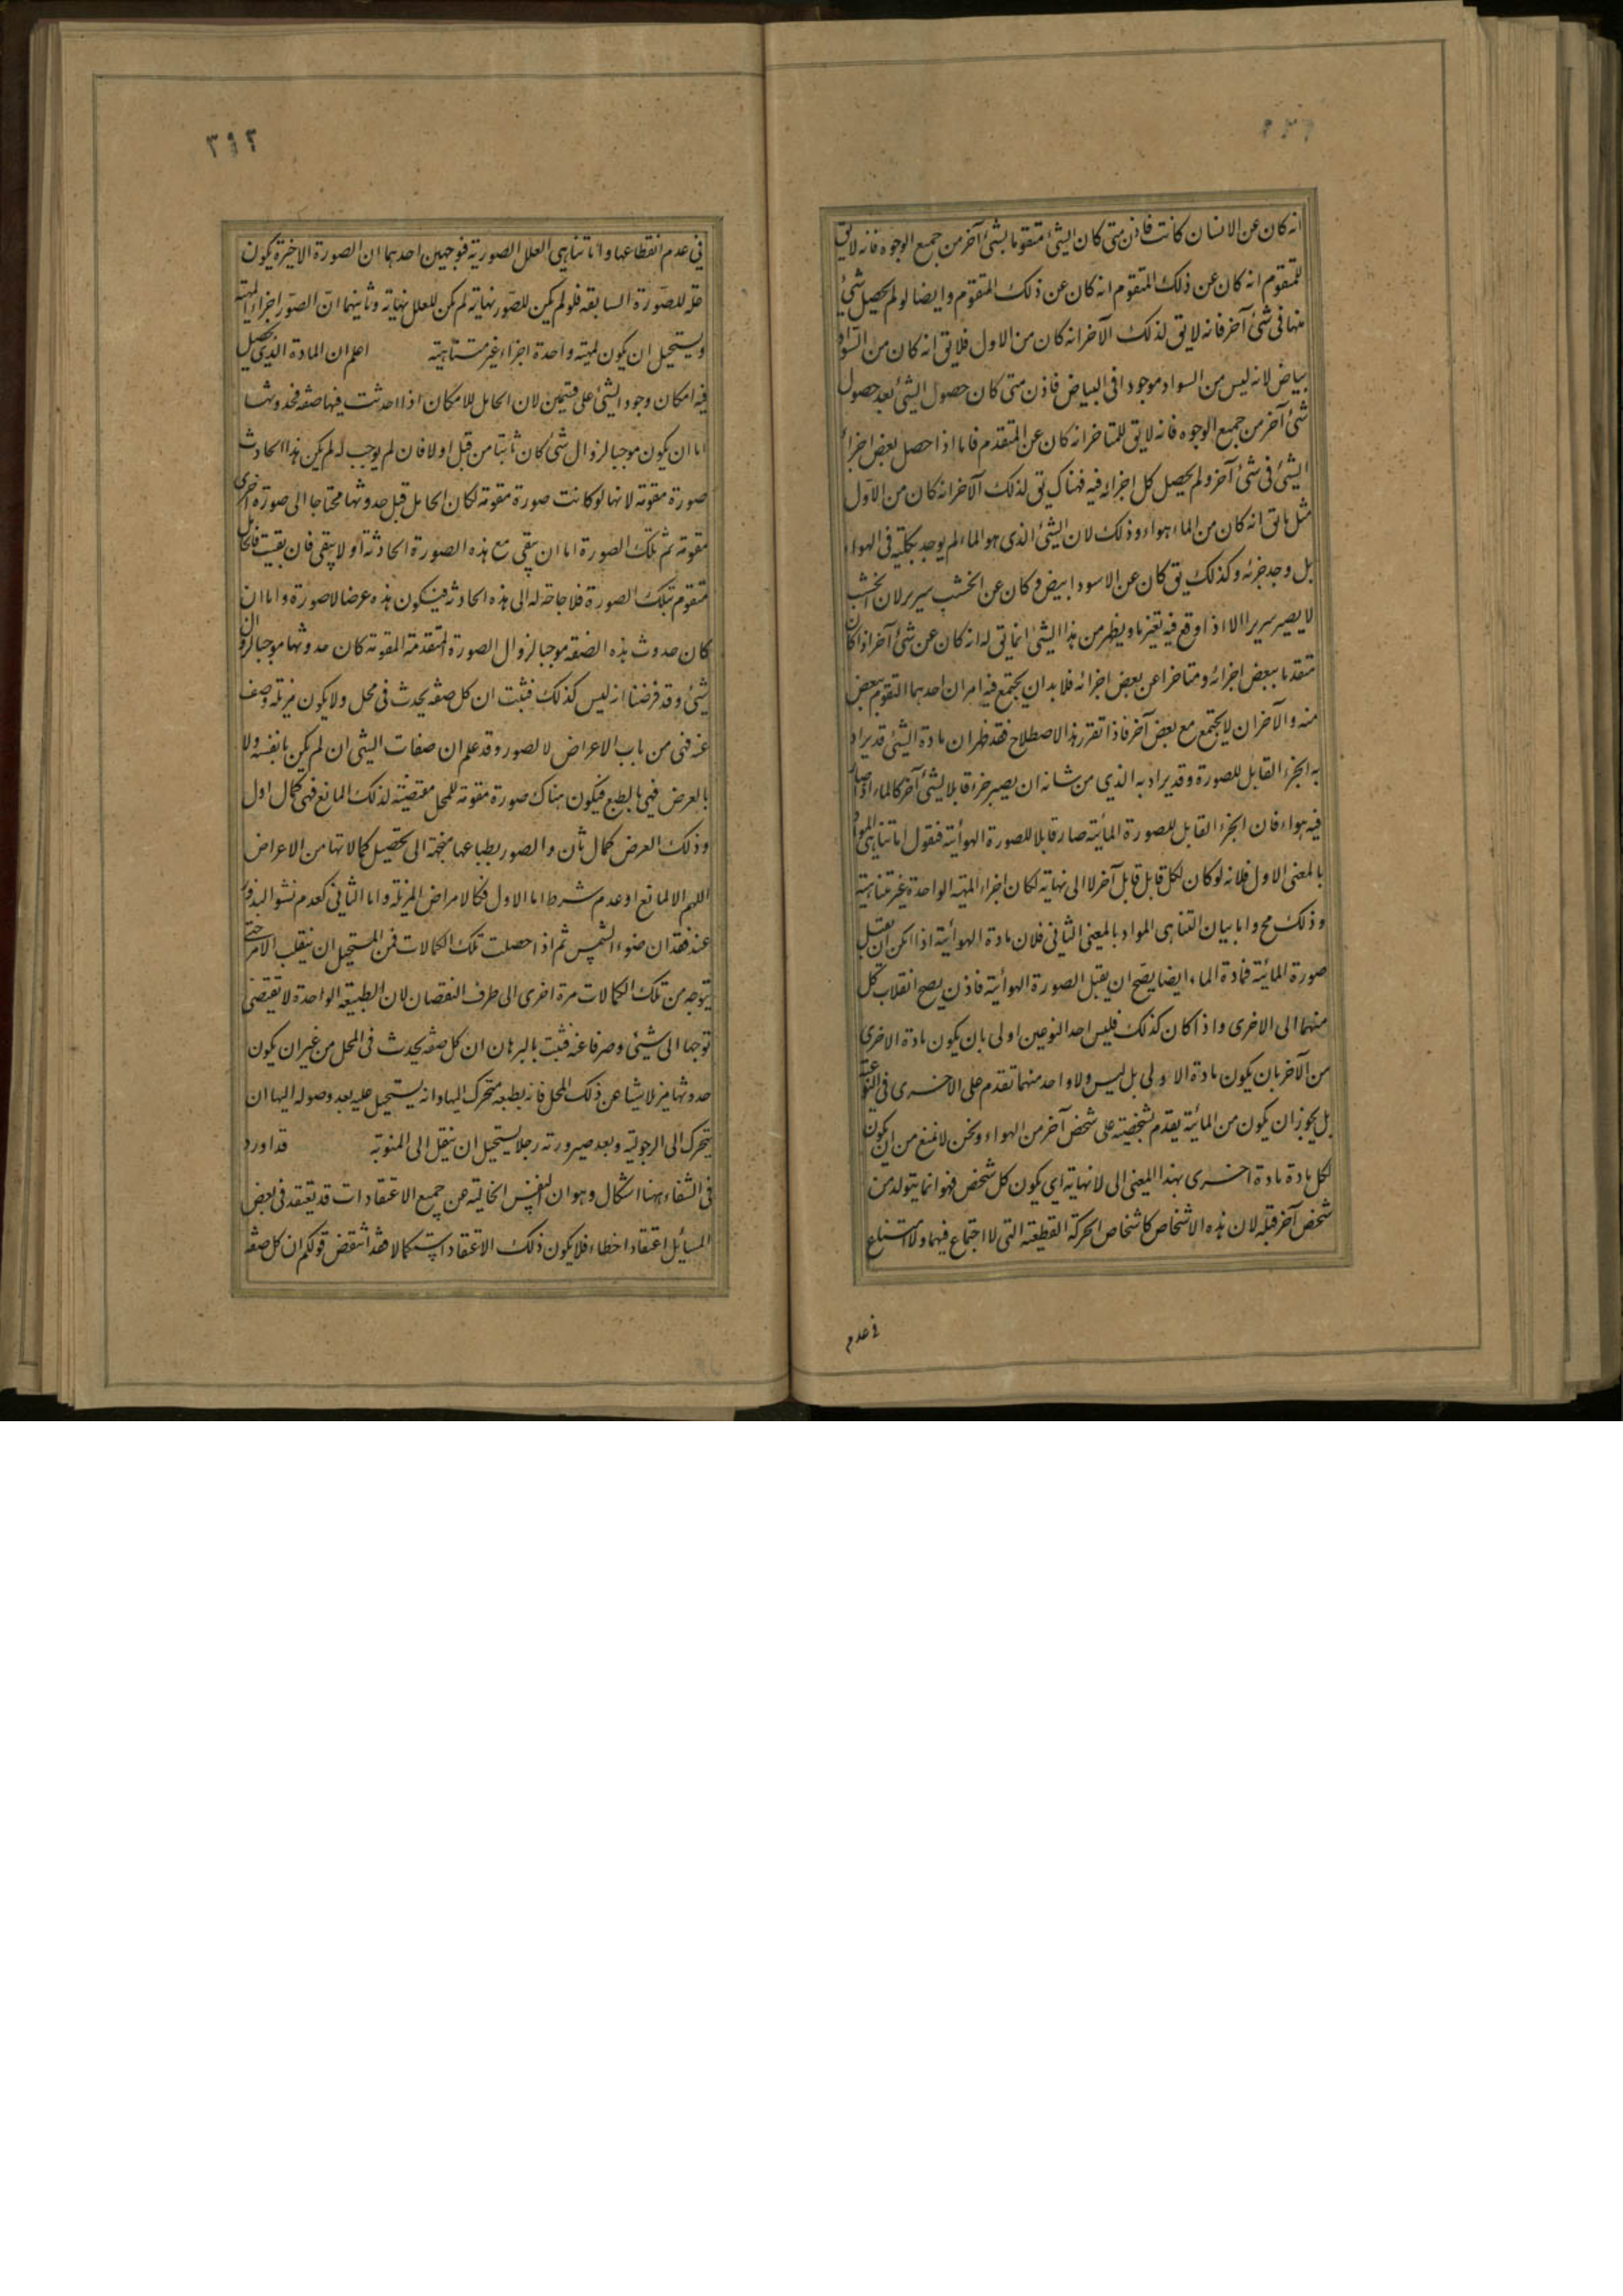 انه كان عن الانسان كانت فاذن متى كان الشئ متقوما بشئ آخر من جميع الوجوه فانه لا يق
للمتقوم انه كان عن ذلك المتقوم انه كان عن ذلك المقوم وايضا لو لم يحصل شئ
منها فى شئ آخر فانه لا يق لذلك الآخر انه كان من الاول فلا يق انه كان من السواد
بياض لانه ليس من السواد موجودا فى البياض فاذن متى كان حصول الشئ بعد حصول
شئ آخر من جميع الوجوه فانه لا يق للمتاخر انه كان عن المتقدم فاما اذا حصل بعض اجزاء
الشئ فى شئ آخر ولم يحصل كل اجزائه فيه فهناك يق لذلك الآخر انه كان من الاول
مثل ما يق انه كان من الماء هواء وذلك لان الشئ الذى هو الماء لم يوجد بكليته فى الهواء
بل وجد جزئه وكذلك يق كان عن الاسود ابيض و كان عن الخشب سرير لان الخشب
لا يصير سريرا الا اذا وقع فيه تغير ما ويظهر من هذا ان الشئ انما يق له انه كان عن شئ آخر اذا كان
متقدما ببعض اجزائه ومتاخرا عن بعض اجزائه فلا بد ان يجتمع فيه امران احدهما التقوم ببعض
منه والآخر ان لا يجتمع مع بعض آخر فاذا تقرر هذا الاصطلاح فقد ظهر ان مادة الشئ قد يراد
به الجزء القابل للصورة وقد يراد به الذي من شانه ان يصير جزء قابلا لشئ آخر كالماء اذا صار
فيه هواء فان الجزء القابل للصورة المائية صار قابلا للصورة الهوائية فنقول اما تناهى المواد
بالمعنى الاول فلانه لو كان لكل قابل قابل آخر لا الى نهاية لكان اجزاء المهية الواحدة غير متناهية
وذلك مح واما بيان التناهى المواد بالمعنى الثانى فلان مادة الهوائية اذا امكن ان يقبل
صورة المائية فمادة الماء ايضا يصح ان يقبل الصورة الهوائية فاذن يصح انقلاب كل
منهما الى الاخرى واذا كان كذلك فليس احد النوعين اولى بان يكون مادة الاخرى
من الآخر بان يكون مادة الاولى بل ليس ولا واحد منهما تقدم على الاخرى فى النوعية
بل يجوز ان يكون من المائية يقدم بشخصيته على شخص آخر من الهواء ونحن لا نمنع من ان يكون
لكل مادة مادة اخرى بهذا المعنى الى لا نهاية اى يكون كل شخص فهو انما يتولد من
شخص آخر قبله لان هذه الاشخاص كاشخاص الحركة القطعية التى لا اجتماع فيها ولا امتناع
فى عدم
٣٩٢
فى عدم انقطاعها واما تناهى العلل الصورية فوجهين احدهما ان الصورة الاخيرة يكون
علة للصورة السابقة فلو لم يكن للصور نهاية لم يكن للعلل نهاية وثانيهما ان الصور اجزاء المهية
ويستحيل ان يكون لمهية واحدة اجزاء غير متناهية اعلم ان المادة الذى يحصل
فيه امكان وجود الشئ على قسمين لان الحامل للامكان اذا احدثت فيها صفة فحدوثها
اما ان يكون موجبا لزوال شئ كان ثابتا من قبل او لا فان لم يوجب له لم يكن هذا الحادث
صورة مقومة لانها لو كانت صورة مقومة لكان الحامل قبل حدوثها محتاجا الى صورة اخرى
مقومة ثم تلك الصورة اما ان يبقى مع هذه الصورة الحادثة او لا يبقى فان بقيت فالحامل
متقوم بتلك الصورة فلا حاجة له الى هذه الحادثة فيكون هذه عرضا لا صورة واما ان
كان حدوث هذه الصفة موجبا لزوال الصورة المتقدمة المقومة كان حدوثها موجبا لزوال
شئ وقد فرضنا انه ليس كذلك فثبت ان كل صفة يحدث فى محل ولا يكون مزيلة وصف
عنه فهى من باب الاعراض لا لصور وقد علم ان صفات الشئ ان لم يكن بالقسر ولا
بالعرض فهى بالطبع فيكون هناك صورة مقومة للمحل مقتضية لذلك المانع فهى كمال اول
وذلك العرض كمال ثان والصور بطباعها متجهة الى تحصيل كمالاتها من الاعراض
اللهم الا لمانع او عدم شرط اما الاول فكالامراض المزيلة واما الثانى كعدم نشو البذور
عند فقدان ضوء الشمس ثم اذا حصلت تلك الكمالات فمن المستحيل ان ينقلب الامر حتى
يتوجه من تلك الكمالات مرة اخرى الى طرف النقصان لان الطبيعة الواحدة لا تقتضى
توجها الى شئ وصرفا عنه فثبت بالبرهان ان كل صفة يحدث فى المحل من غير ان يكون
حدوثها مزيلا شيئا عن ذلك المحل فانه بطبعه متحرك اليها وانه يستحيل عليه بعد وصوله اليها ان
يتحرك الى الرجولية وبعد صيرورته رجلا يستحيل ان ينتقل الى المنوية قد اورد
فى الشفاء ههنا اشكال وهو ان النفس الخالية عن جميع الاعتقادات قد يعتقد فى بعض
المسائل اعتقادا خطاء فلا يكون ذلك الاعتقاد استكمالا فقد انتقض قولكم ان كل صفة